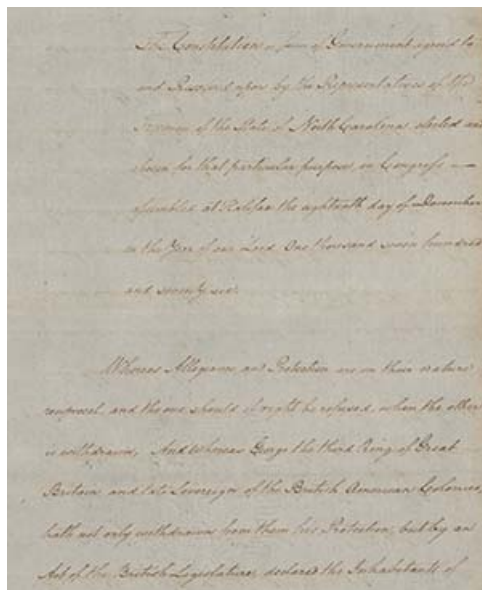 The Constitution or form of Government agreed to
and Resolved upon by the Representatives of the
Freemen of the State of North Carolina, elected and
chosen for that particular purpose, in Congress
assembled at Halifax the eighteenth day of December
in the Year of our Lord One thousand seven hundred
and seventy six.
Whereas Allegiance and Protection are in their nature
reciprocal, and the one should of right be refused, when the other
is withdrawn, And whereas George the third King of Great
Britain and late Sovereign of the British American Colonies,
hath not only withdrawn from them his Protection, but by an
Act of the British Legislature, declared the Inhabitants of